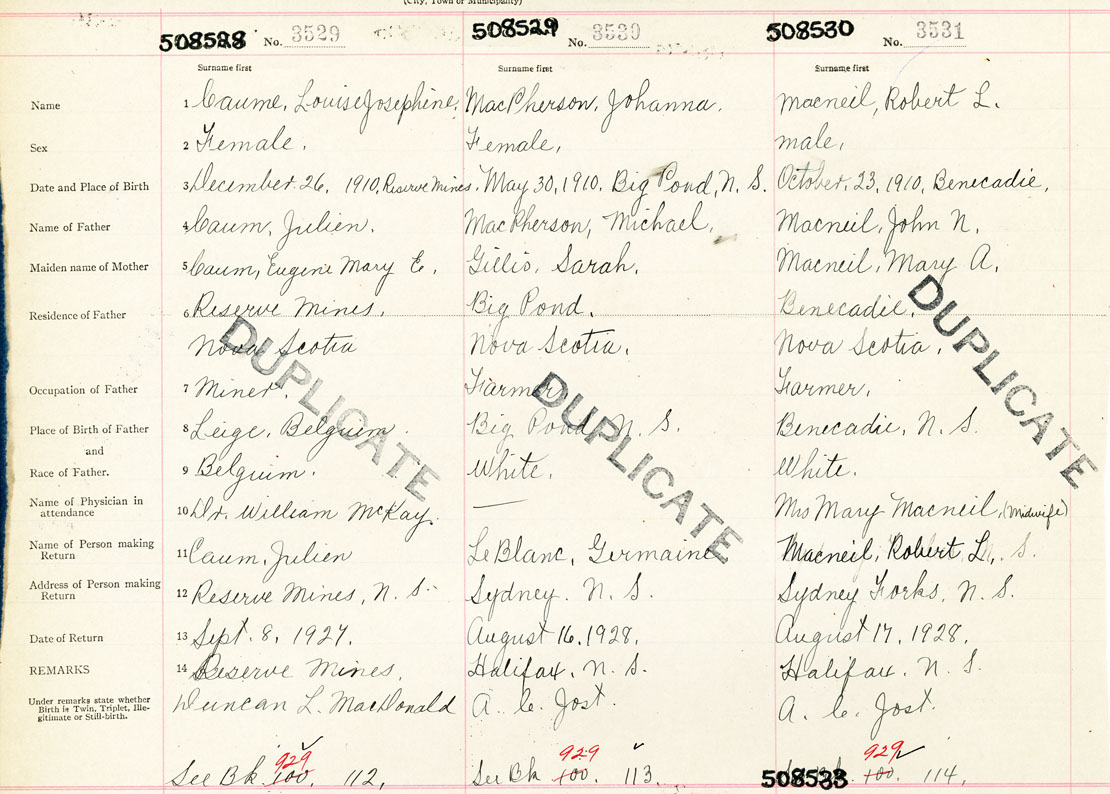 (City, Town or Municipality)
508528 No. 3529 508529 No. 3530 508530 No. 3531
Surname first Surname first Surname first
Name 1 Caume, Louise Josephine, MacPherson, Johanna. Macneil, Robert L.
Sex 2 Female. Female, male,
Date and Place of Birth 3 December 26, 1910, Reserve Mines. May 30, 1910. Big Pond, N. S. October, 23, 1910, Benecadie,
Name of Father 4 Caum, Julien. MacPherson, Michael, Macneil, John N.
Maiden name of Mother 5 Caum, Eugene Mary E. Gillis, Sarah. Macneil, Mary A.
Residence of Father 6 Reserve Mines, Big Pond. Benecadie.
Nova Scotia Nova Scotia. Nova Scotia.
Occupation of Father 7 Miner. Farmer Farmer,
Place of Birth of Father 8 Leige, Belgium. Big Pond N. S. Benecadie, N. S.
and
Race of Father. 9 Belgium. White. White.
Name of Physician in
attendance 10 Dr. William McKay. — Mrs Mary Macneil, (Midwife)
Name of Person making
Return 11 Caum, Julien LeBlanc, Germaine Macneil, Robert L.,
Address of Person making
Return 12 Reserve Mines, N. S. Sydney. N. S. Sydney Forks, N. S.
Date of Return 13 Sept. 8, 1927. August 16, 1928. August 17, 1928,
REMARKS 14 Reserve Mines, Halifax, N. S. Halifax, N. S.
Under remarks state whether
Birth is Twin, Triplet, Ille-
gitimate or Still-birth.
Duncan L. MacDonald A. C. Jost. A. C. Jost.
929 929 929
See Bk 100. 112, See Bk 100. 113. 508533 100. 114,
DUPLICATE
DUPLICATE
DUPLICATE